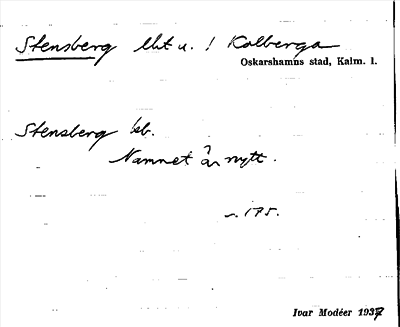 Stensberg lht u. ! Kolberga
Oskarshamns stad, Kalm. l.
Stensberg kb.
Namnet är nytt.
s. 175.
Ivar Modéer 1937